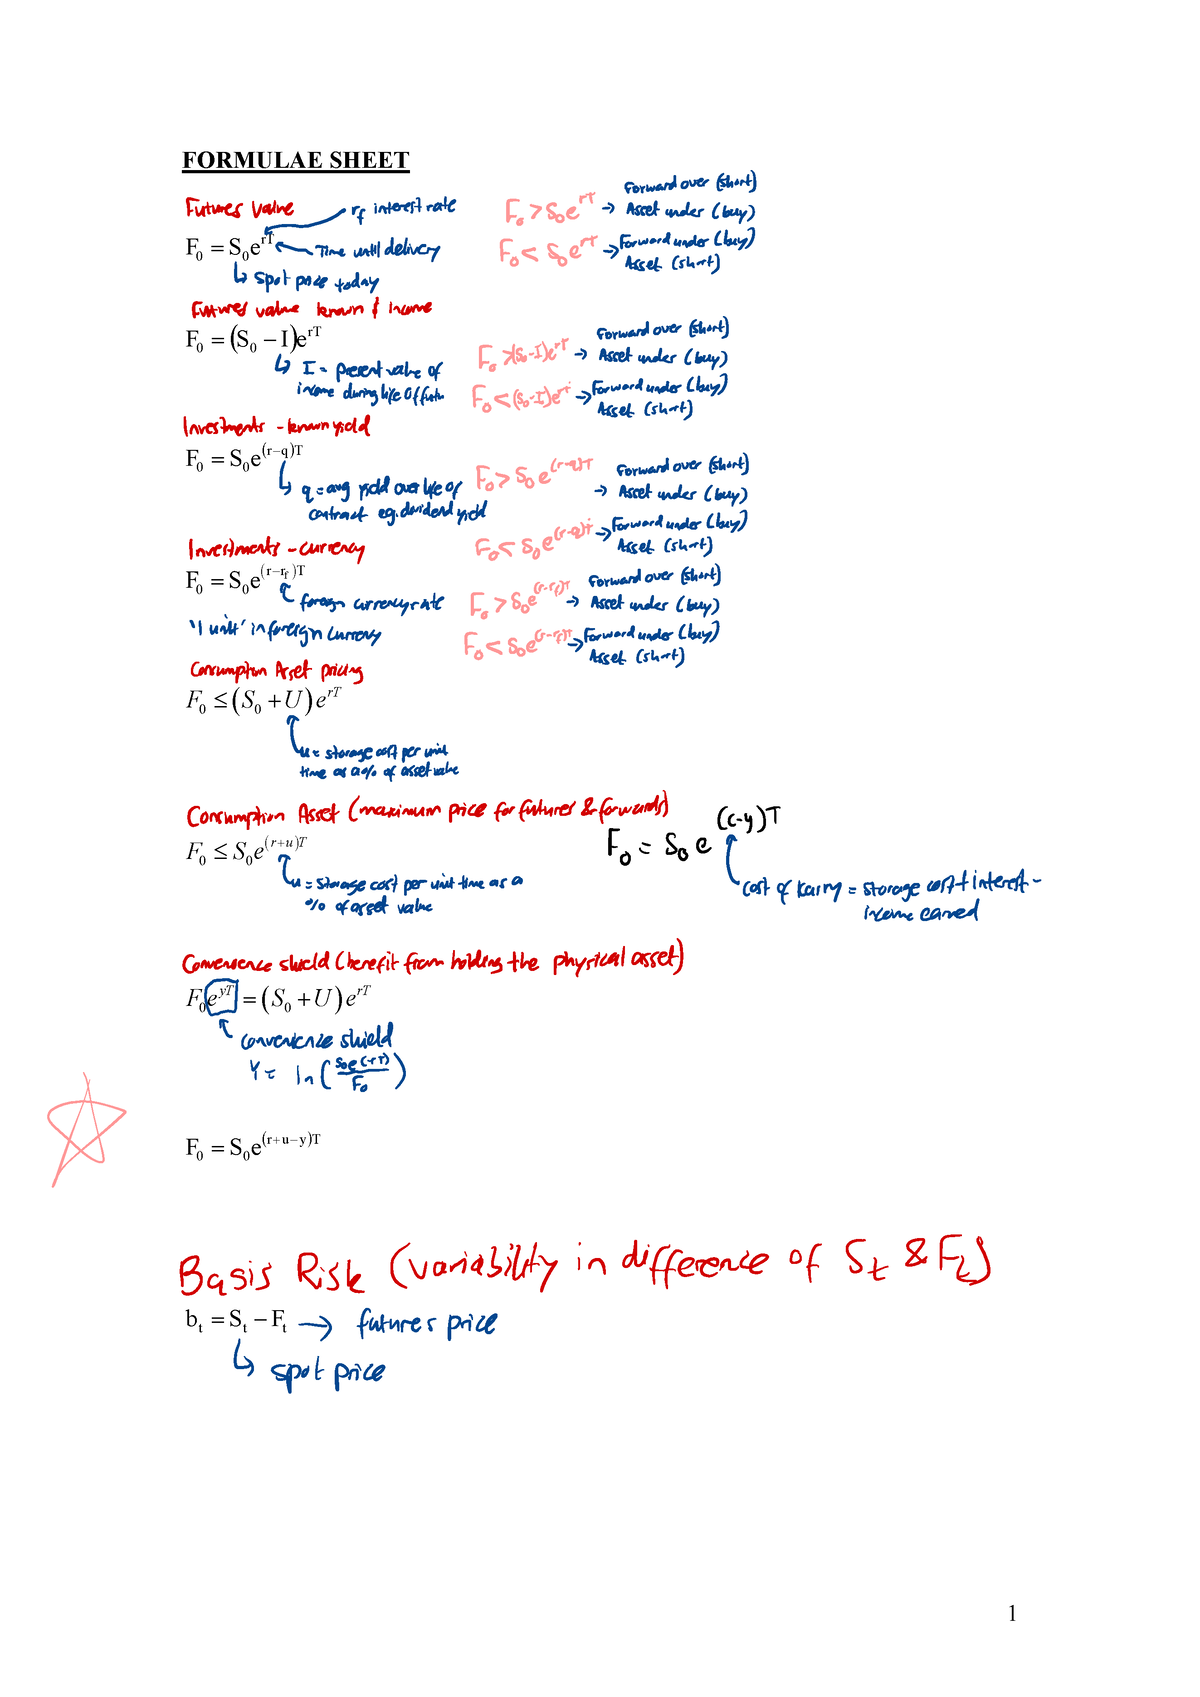 FORMULAE SHEET
Futures Value
r_f interest rate
F₀ = S₀e^{rT}
Time until delivery
spot price today
F₀ > S₀e^{rT} → Forward over (short)
Asset under (buy)
F₀ < S₀e^{rT} → Forward under (buy)
Asset (short)
Futures value known $ income
F₀ = (S₀ − I)e^{rT}
I = present value of
income during life of futu.
F₀ > (S₀-I)e^{rT} → Forward over (short)
Asset under (buy)
F₀ < (S₀-I)e^{rT} → Forward under (buy)
Asset (short)
Investments - known yield
F₀ = S₀e^{(r−q)T}
q = avg yield over life of
contract eg. dividend yield
F₀ > S₀e^{(r-q)T} → Forward over (short)
Asset under (buy)
F₀ < S₀e^{(r-q)T} → Forward under (buy)
Asset (short)
Investments - currency
F₀ = S₀e^{(r−r_f)T}
foreign currency rate
'1 unit' in foreign currency
F₀ > S₀e^{(r-r_f)T} → Forward over (short)
Asset under (buy)
F₀ < S₀e^{(r-r_f)T} → Forward under (buy)
Asset (short)
Consumption Asset pricing
F₀ ≤ (S₀ + U)e^{rT}
u = storage cost per unit
time as a % of asset value
Consumption Asset (maximum price for futures & forwards)
F₀ ≤ S₀e^{(r+u)T}
u = storage cost per unit time as a
% of asset value
F₀ = S₀e^{(c-y)T}
cost of karry = storage cost + interest -
income earned
Convenience shield (benefit from holding the physical asset)
F₀e^{yT} = (S₀ + U)e^{rT}
convenience shield
Y = ln(S₀e(rT)/F₀)
F₀ = S₀e^{(r+u−y)T}
Basis Risk (variability in difference of S_t & F_t)
b_t = S_t − F_t → futures price
spot price
1